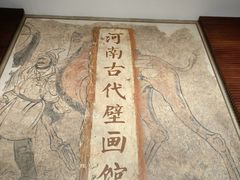 河南古代壁画馆